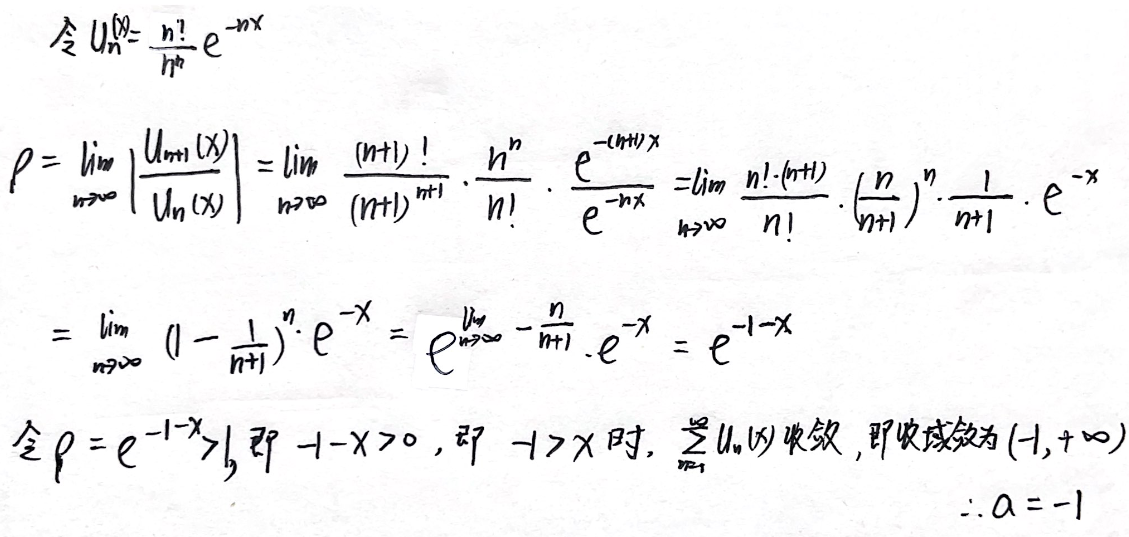 令 Uₙ(x) = n!/nⁿ e^(-nx)
ρ = lim_(n→∞) |Uₙ₊₁(x)/Uₙ(x)| = lim_(n→∞) (n+1)!/(n+1)^(n+1) · nⁿ/n! · e^(-(n+1)x)/e^(-nx) = lim_(n→∞) n!·(n+1)/n! · (n/(n+1))ⁿ · 1/(n+1) · e^(-x)
= lim_(n→∞) (1 - 1/(n+1))ⁿ · e^(-x) = e^(lim_(n→∞) -n/(n+1)) · e^(-x) = e^(-1-x)
令 ρ = e^(-1-x) > 1, 即 -1-x>0, 即 -1>x 时, ∑_(n=1)^∞ Uₙ(x) 收敛, 即收域敛为 (-1, +∞)
∴ a = -1